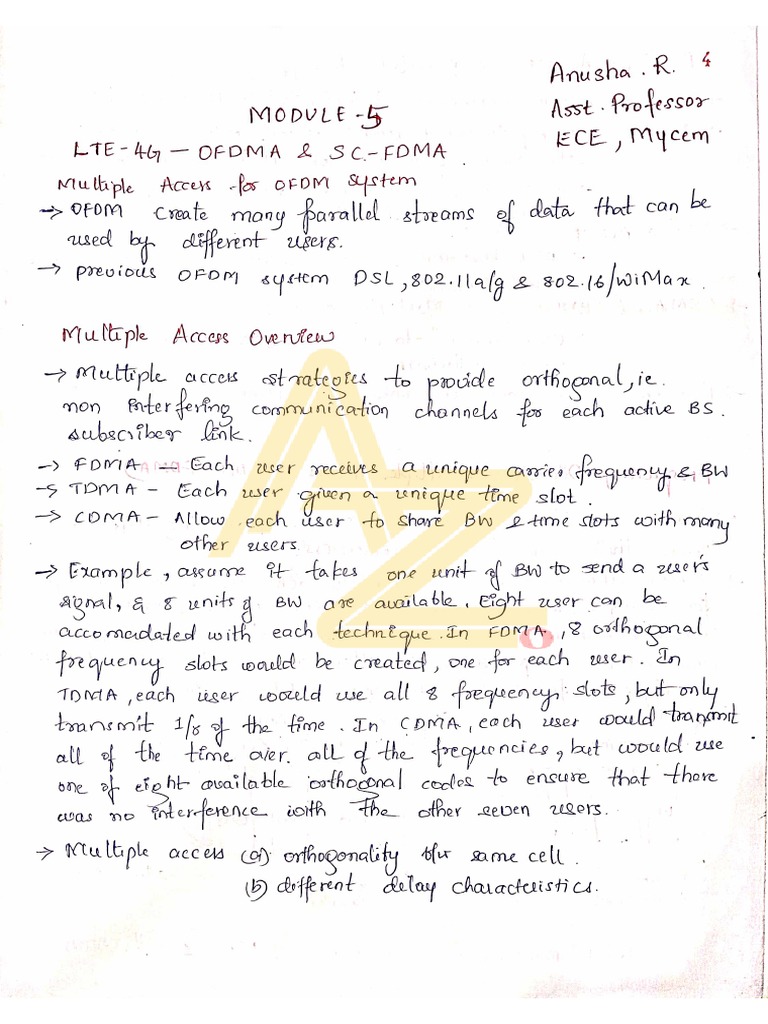 4
Anusha . R.
Asst. Professor
ECE , Mycem
MODULE -5
LTE-4G — OFDMA & SC-FDMA
Multiple Access for OFDM system
→ OFDM create many parallel streams of data that can be
used by different users.
→ previous OFDM system DSL, 802.11a/g & 802.16/WiMax .
Multiple Access Overview
→ Multiple access strategies to provide orthogonal, ie.
non interfering communication channels for each active BS.
subscriber link.
→ FDMA — Each user receives a unique carrier frequency & BW
→ TDMA - Each user given a unique time slot.
→ CDMA - Allow each user to share BW & time slots with many
other users
→ Example, assume it takes one unit of BW to send a user's
signal, & 8 units of BW are available. Eight user can be
accomadated with each technique. In FDMA, 8 orthogonal
frequency slots would be created, one for each user. In
TDMA, each user would use all 8 frequency slots, but only
transmit 1/8 of the time. In CDMA, each user would transmit
all of the time over all of the frequencies, but would use
one of eight available orthogonal codes to ensure that there
was no interference with the other seven users.
→ Multiple access (a) orthogonality b/w same cell.
(b) different delay characteristics.
AZ